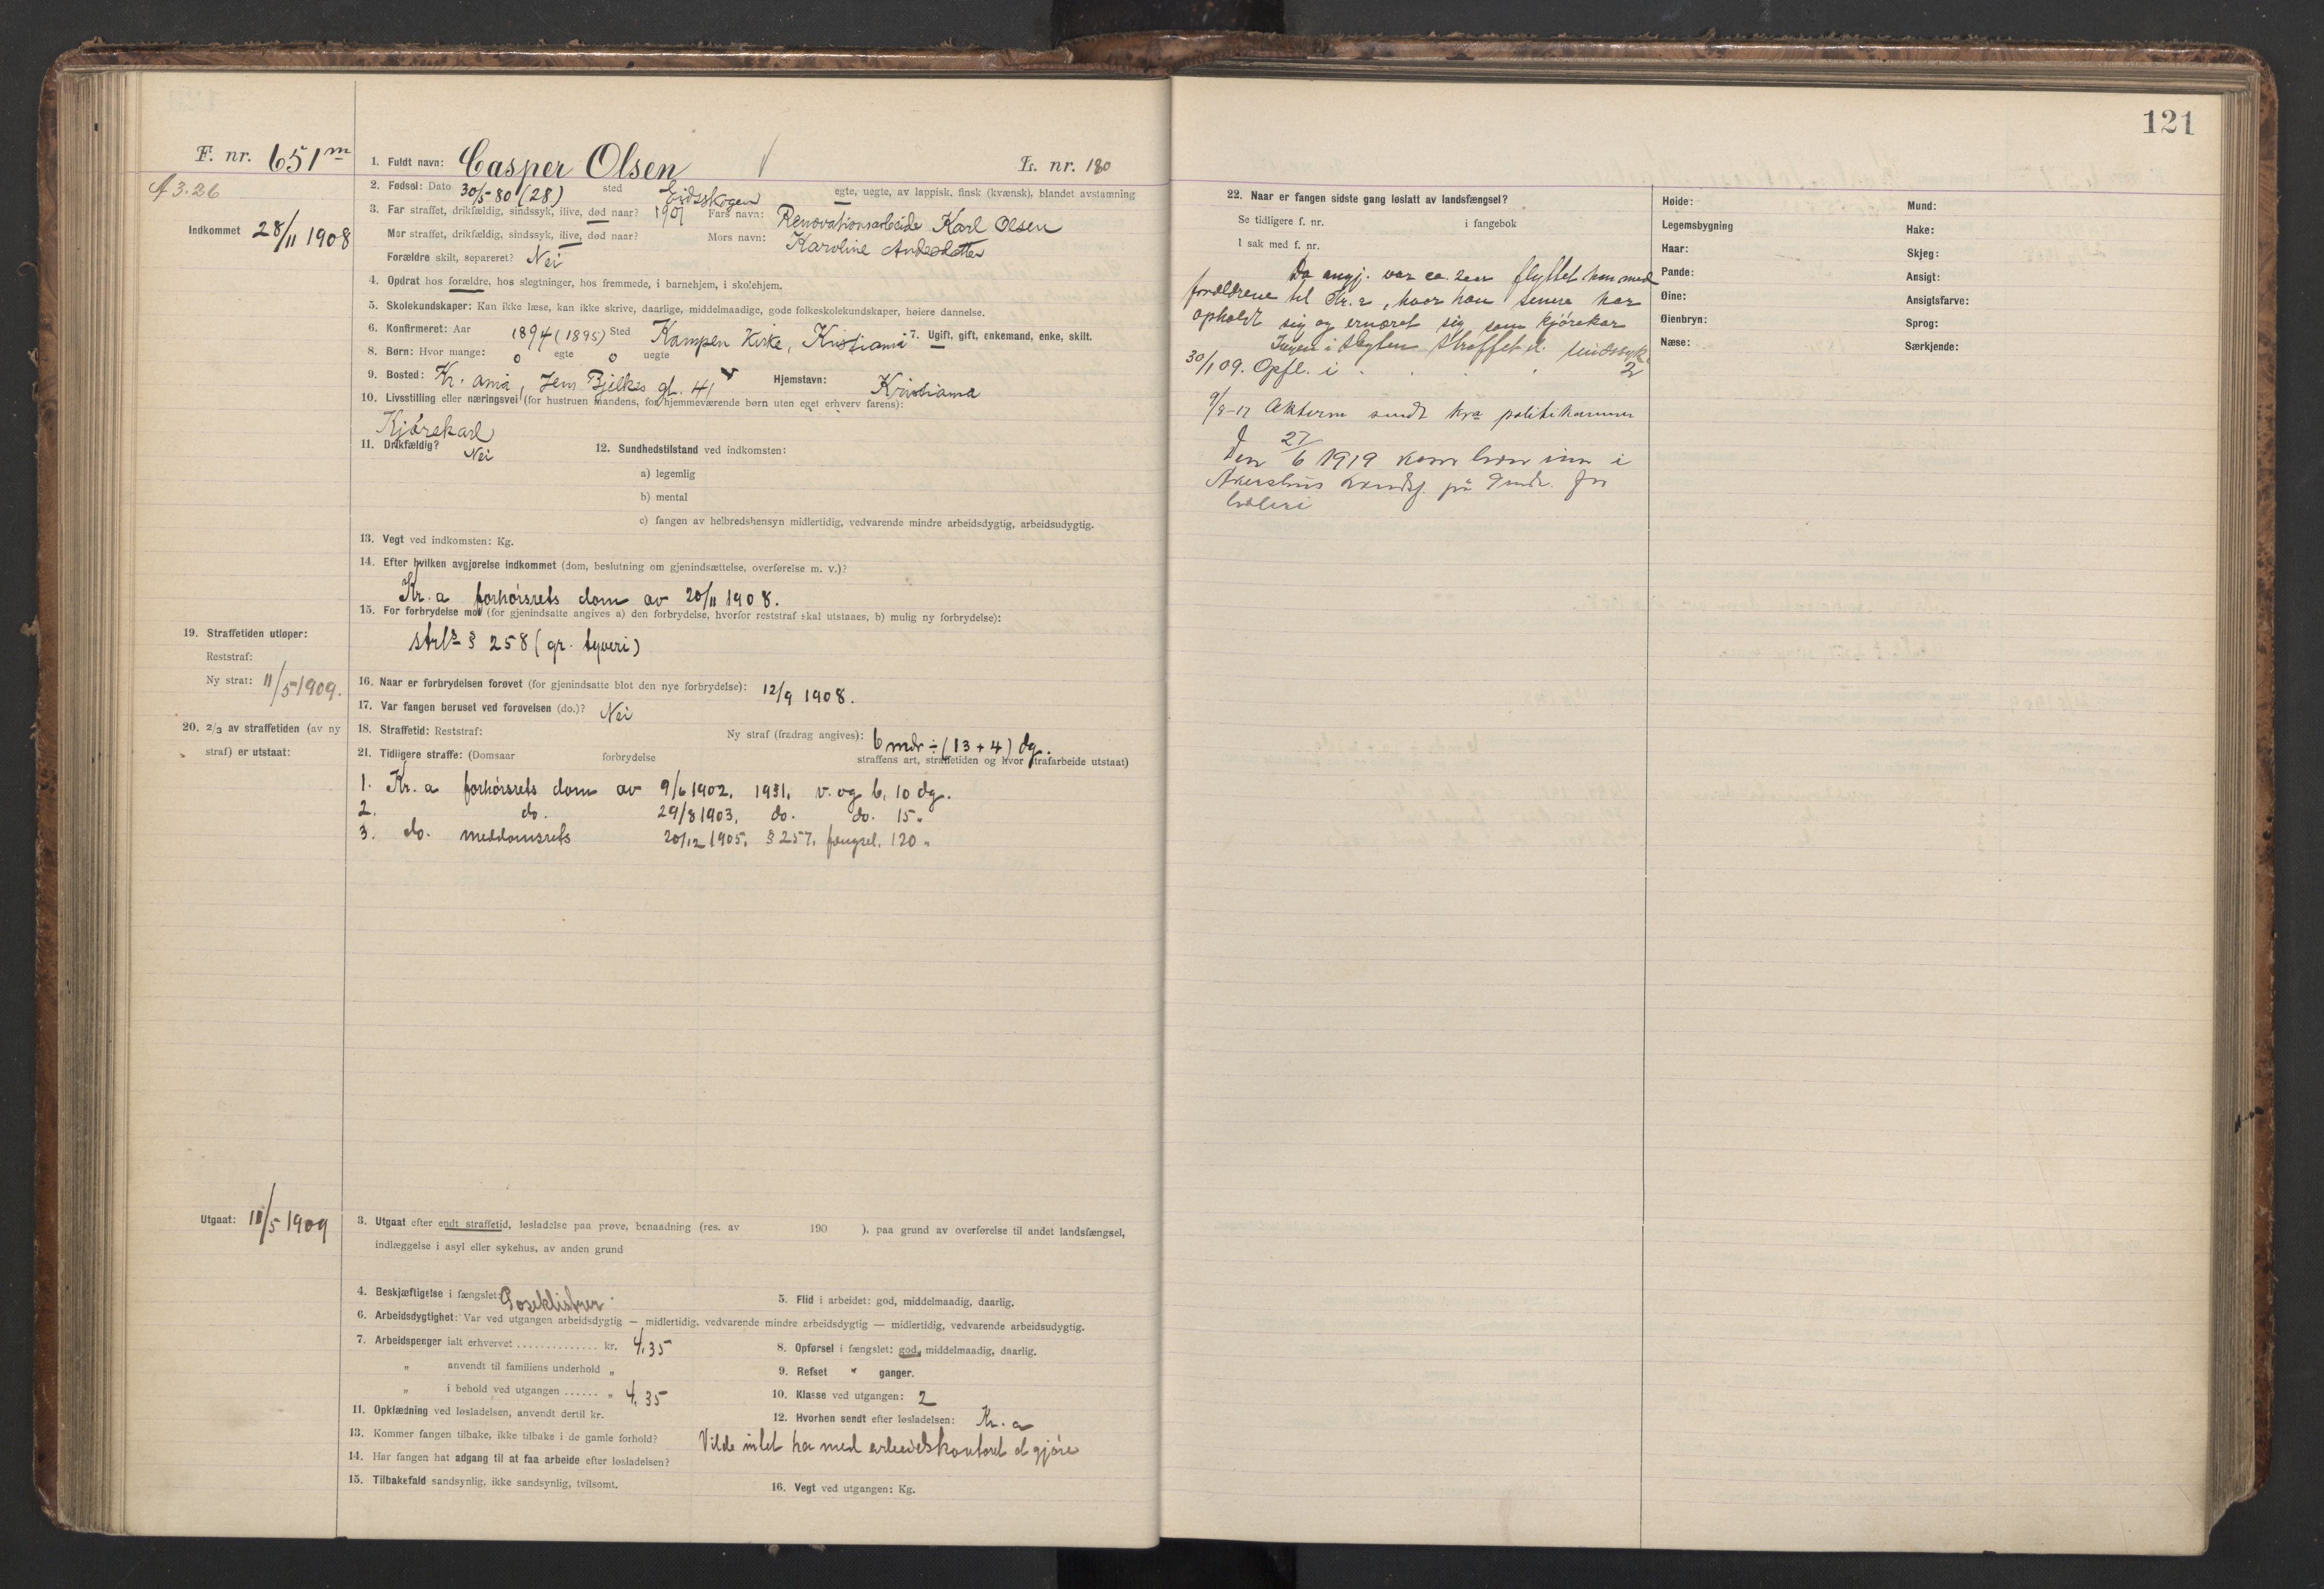 121
F. nr. 651 m
A 3.26
Indkommet 28/11 1908
1. Fuldt navn: Casper Olsen L. nr. 180
2. Fødsel: Dato 30/5-80 (28) sted Eidsskogen egte, uegte, av lappisk, finsk (kvænsk), blandet avstamning
3. Far straffet, drikfældig, sindssyk, ilive, død naar? 1907 Fars navn: Renovationsarbeide Karl Olsen
Mor straffet, drikfældig, sindssyk, ilive, død naar? Mors navn: Karoline Andersdatter
Forældre skilt, separeret? Nei
4. Opdrat hos forældre, hos slegtninger, hos fremmede, i barnehjem, i skolehjem.
5. Skolekundskaper: Kan ikke læse, kan ikke skrive, daarlige, middelmaadige, gode folkeskolekundskaper, høiere dannelse.
6. Konfirmeret: Aar 1894 (1895) Sted Kampen Kirke, Kristiania 7. Ugift, gift, enkemand, enke, skilt.
8. Børn: Hvor mange: 0 egte 0 uegte
9. Bosted: Kr. ania, Jens Bjelkes gt. 41 Hjemstavn: Kristiania
10. Livsstilling eller næringsvei (for hustruen mandens, for hjemmeværende børn uten eget erhverv farens):
Kjørekarl
11. Drikfældig? Nei 12. Sundhedstilstand ved indkomsten:
a) legemlig
b) mental
c) fangen av helbredshensyn midlertidig, vedvarende mindre arbeidsdygtig, arbeidsudygtig.
13. Vegt ved indkomsten: Kg.
14. Efter hvilken avgjørelse indkommet (dom, beslutning om gjenindsættelse, overførelse m. v.)?
Kr. a forhørsrets dom av 20/11 1908.
15. For forbrydelse mot (for gjenindsatte angives a) den forbrydelse, hvorfor reststraf skal utstaaes, b) mulig ny forbrydelse):
strl § 258 (gr. tyveri)
19. Straffetiden utløper:
Reststraf:
Ny straf: 11/5 1909.
16. Naar er forbrydelsen forøvet (for gjenindsatte blot den nye forbrydelse): 12/9 1908.
17. Var fangen beruset ved forøvelsen (do.)? Nei
20. 2/3 av straffetiden (av ny
straf) er utstaat:
18. Straffetid: Reststraf: Ny straf (fradrag angives): 6 mdr ÷ (13 + 4) dg.
21. Tidligere straffe: (Domsaar forbrydelse straffens art, straffetiden og hvor strafarbeide utstaat)
1. Kr. a forhørsrets dom av 9/6 1902, 1931, v. og b, 10 dg.
2. do. 29/8 1903, do. do. 15 "
3. do. meddomsrets 20/12 1905, § 257, fængsel, 120 "
Utgaat: 11/5 1909
3. Utgaat efter endt straffetid, løsladelse paa prøve, benaadning (res. av 190 ), paa grund av overførelse til andet landsfængsel,
indlæggelse i asyl eller sykehus, av anden grund
4. Beskjæftigelse i fængslet: Poseklistrer 5. Flid i arbeidet: god, middelmaadig, daarlig.
6. Arbeidsdygtighet: Var ved utgangen arbeidsdygtig — midlertidig, vedvarende mindre arbeidsdygtig — midlertidig, vedvarende arbeidsudygtig.
7. Arbeidspenger ialt erhvervet .............. kr. 4,35 8. Opførsel i fængslet: god, middelmaadig, daarlig.
" anvendt til familiens underhold " 9. Refset " ganger.
" i behold ved utgangen ...... " 4,35 10. Klasse ved utgangen: 2
11. Opklædning ved løsladelsen, anvendt dertil kr. 12. Hvorhen sendt efter løsladelsen: Kr. a
13. Kommer fangen tilbake, ikke tilbake i de gamle forhold? Vilde intet ha med arbeidskontoret at gjøre
14. Har fangen hat adgang til at faa arbeide efter løsladelsen?
15. Tilbakefald sandsynlig, ikke sandsynlig, tvilsomt. 16. Vegt ved utgangen: Kg.
22. Naar er fangen sidste gang løslatt av landsfængsel?
Se tidligere f. nr. i fangebok
I sak med f. nr.
Da angj. var ca. 2 aar flyttet han med
forældrene til Kr. a, hvor han senere har
opholdt sig og ernæret sig som kjørekar
Ingen i Slegten Straffet el. sindssyk
30/1 09. Opfl. i 2
9/8-17 Akterne sendt kra politikammer
Den 27/6 1919 kom han inn i
Akershus landsf. på 9 mdr. for
heleri
Høide:
Legemsbygning
Haar:
Pande:
Øine:
Øienbryn:
Næse:
Mund:
Hake:
Skjeg:
Ansigt:
Ansigtsfarve:
Sprog:
Særkjende: